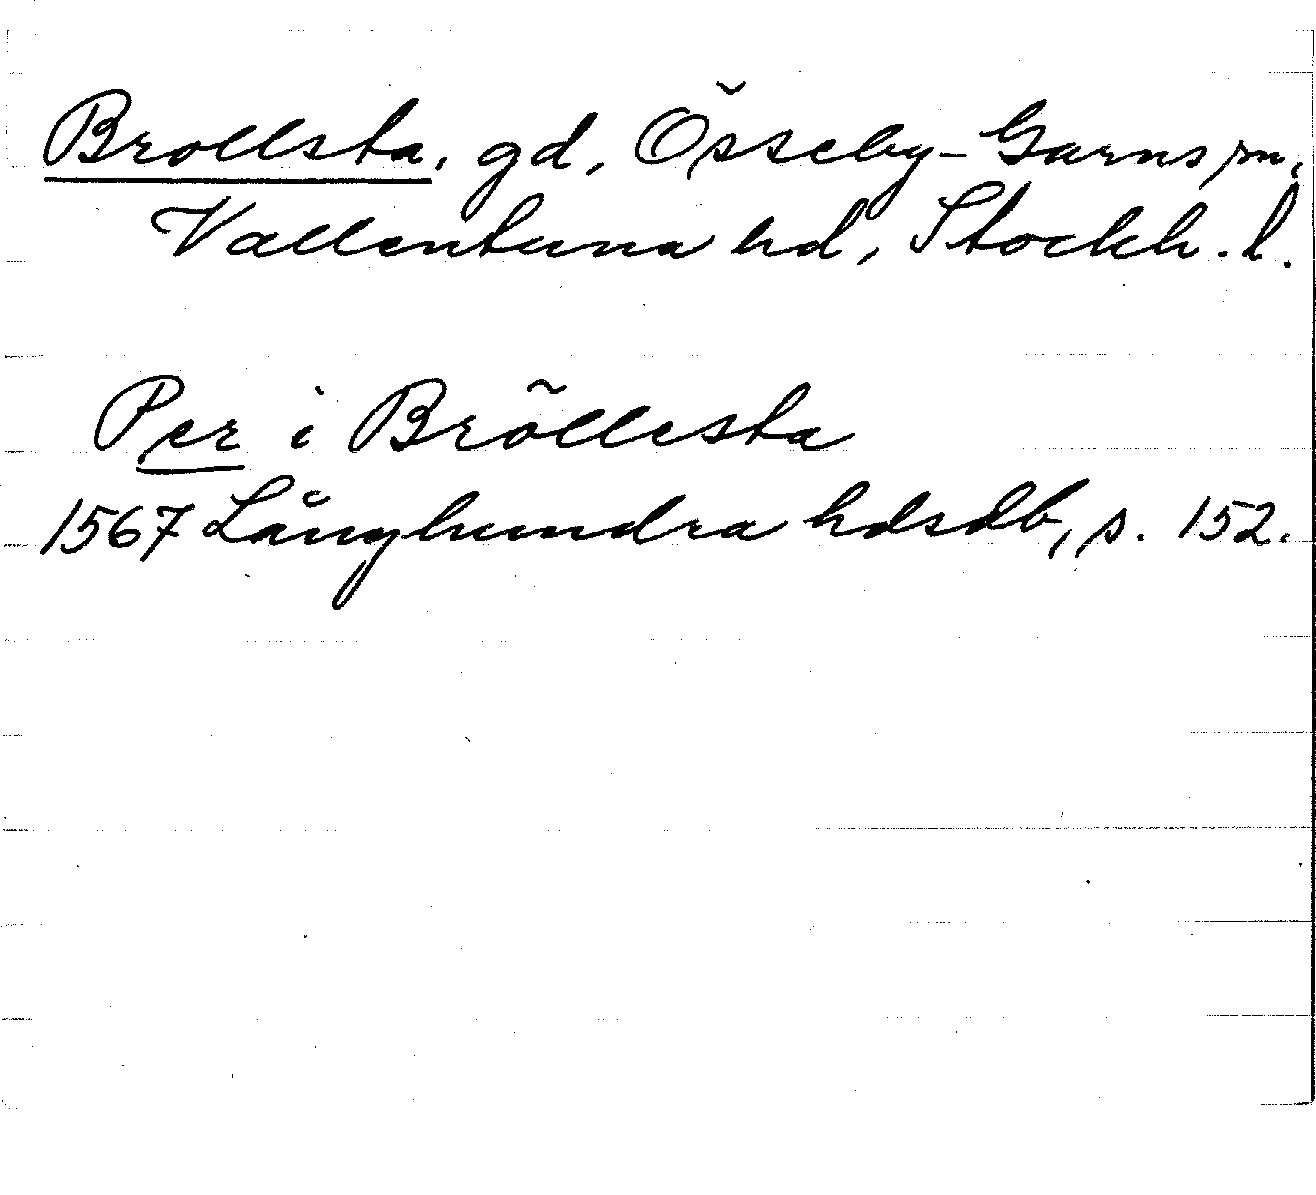 Brollsta, gd, Össeby-Garns sn,
Vallentuna hd, Stockh. l.
Per i Bröllesta
1567 Långhundra hdsdb, s. 152.